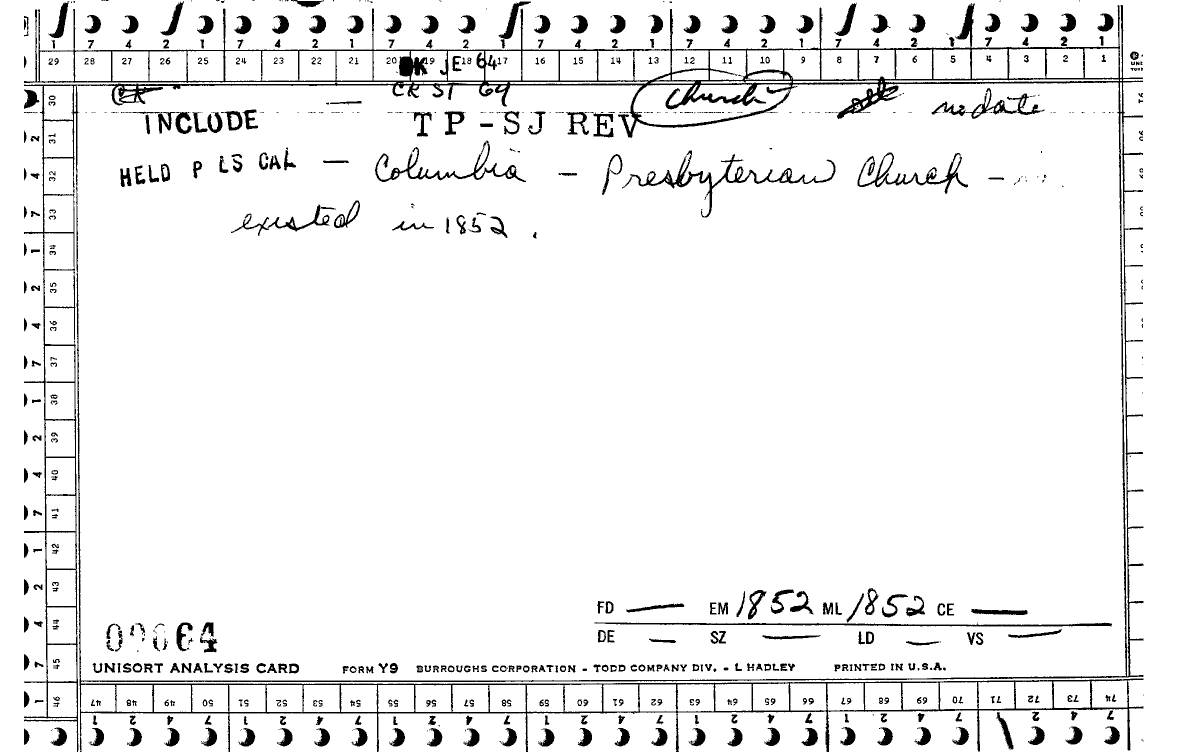 1 7 4 2 1 7 4 2 1 7 4 2 1 7 4 2 1 7 4 2 1 7 4 2 1 7 4 2 1
29 28 27 26 25 24 23 22 21 20 19 18 17 16 15 14 13 12 11 10 9 8 7 6 5 4 3 2 1
JE 64
CK ST 64
Church no date
INCLUDE — TP-SJ REV
HELD P LS CAL — Columbia - Presbyterian Church -
existed in 1852.
30
2 31
4 32
7 33
1 34
2 35
4 36
7 37
1 38
2 39
4 40
7 41
1 42
2 43
4 44
7 45
1 46
FD — EM 1852 ML 1852 CE —
DE — SZ — LD — VS —
UNISORT ANALYSIS CARD FORM Y9 BURROUGHS CORPORATION - TODD COMPANY DIV. - L HADLEY PRINTED IN U.S.A.
47 48 49 50 51 52 53 54 55 56 57 58 59 60 61 62 63 64 65 66 67 68 69 70 71 72 73 74
1 2 4 7 1 2 4 7 1 2 4 7 1 2 4 7 1 2 4 7 1 2 4 7 1 2 4 7